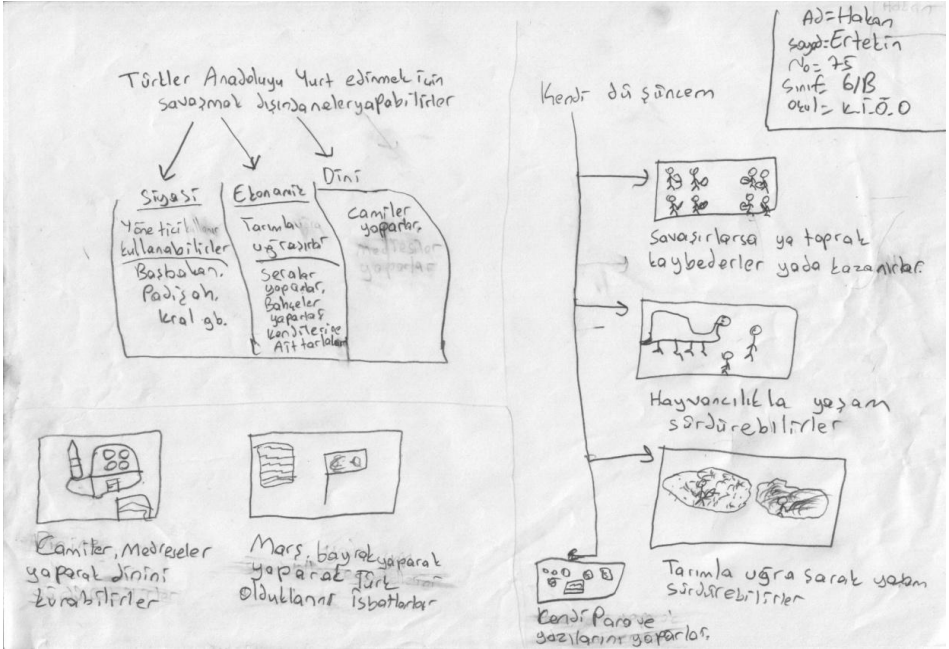 Ad=Hakan
Soyad=Ertekin
No=75
Sınıf=6/B
Okul=K.İ.Ö.O
Türkler Anadoluyu Yurt edinmek için
savaşmak dışında neler yapabilirler
Siyasi
Yönetici
kullanabilirler
Başbakan,
Padişah,
kral gb.
Ekonomik
Tarımla
uğraşır
Seralar
yaparlar,
Bahçeler
yaparlar
kendilerine
Ait tarlalar
Dini
Camiler
yaparlar,
Camiler, Medreseler
yaparak dinini
kurabilirler
Marş, bayrak yaparak
yaparak Türk
olduklarını isbatlarlar
Kendi düşüncem
Savaşırlarsa ya toprak
kaybederler yada kazanırlar.
Hayvancılıkla yaşam
sürdürebilirler
Tarımla uğraşarak yaşam
sürdürebilirler
Kendi Para ve
yazılarını yaparlar,